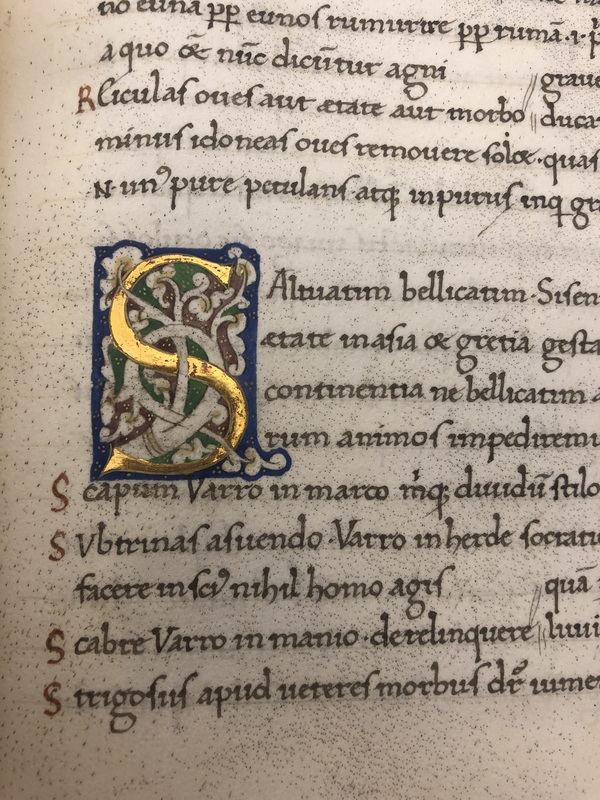 no euna pp̱ eunos rumurire pp̱ rumā·i·
a quo œ̄ nūc dicūtur agni grave
Reiculas oves aut ætate aut morbo duca
minus idoneas oves removere solœ·quas
N·un⁹ pure petulans atq; inputus inq gr
S Altuatim bellicatim·Sisen
ætate in asia & gretia gesta
continentia ne bellicatim a
rum animos impediremu
Scapum Varro in marco m̄q; diuidū stilo
SVbtrinas a suendo·Varro in herde socratic
facere in sci⁹ nihil homo agis quā
Scabre Varro in manio·derelinquere luui
Strigosus apud ueteres morbus dr̄ iume